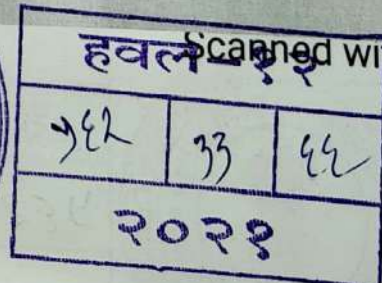 हवल
Scanned wi
33 ६६
२०२१